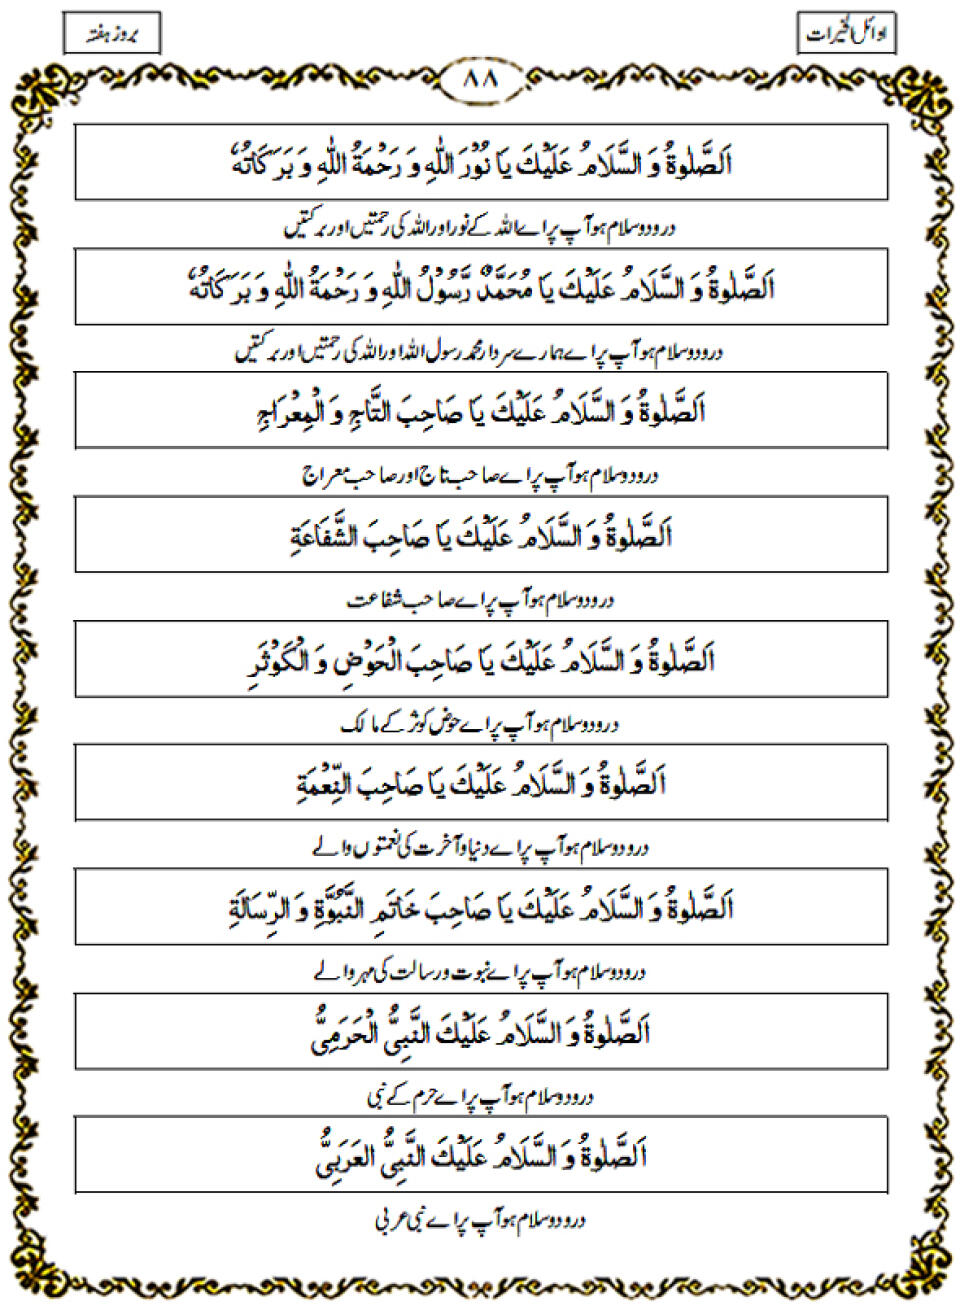 اوائل الخیرات
بروز ہفتہ
۸۸
اَلصَّلٰوةُ وَ السَّلَامُ عَلَیْكَ یَا نُوْرَ اللّٰهِ وَ رَحْمَةُ اللّٰهِ وَ بَرَكَاتُهٗ
درود و سلام ہو آپ پر اے اللہ کے نور اور اللہ کی رحمتیں اور برکتیں
اَلصَّلٰوةُ وَ السَّلَامُ عَلَیْكَ یَا مُحَمَّدٌ رَّسُوْلُ اللّٰهِ وَ رَحْمَةُ اللّٰهِ وَ بَرَكَاتُهٗ
درود و سلام ہو آپ پر اے ہمارے سردار محمد رسول اللہ اور اللہ کی رحمتیں اور برکتیں
اَلصَّلٰوةُ وَ السَّلَامُ عَلَیْكَ یَا صَاحِبَ التَّاجِ وَ الْمِعْرَاجِ
درود و سلام ہو آپ پر اے صاحب تاج اور صاحب معراج
اَلصَّلٰوةُ وَ السَّلَامُ عَلَیْكَ یَا صَاحِبَ الشَّفَاعَةِ
درود و سلام ہو آپ پر اے صاحب شفاعت
اَلصَّلٰوةُ وَ السَّلَامُ عَلَیْكَ یَا صَاحِبَ الْحَوْضِ وَ الْكَوْثَرِ
درود و سلام ہو آپ پر اے حوض کوثر کے مالک
اَلصَّلٰوةُ وَ السَّلَامُ عَلَیْكَ یَا صَاحِبَ النِّعْمَةِ
درود و سلام ہو آپ پر اے دنیا و آخرت کی نعمتوں والے
اَلصَّلٰوةُ وَ السَّلَامُ عَلَیْكَ یَا صَاحِبَ خَاتَمِ النَّبُوَّةِ وَ الرِّسَالَةِ
درود و سلام ہو آپ پر اے نبوت و رسالت کی مہر والے
اَلصَّلٰوةُ وَ السَّلَامُ عَلَیْكَ النَّبِیُّ الْحَرَمِیُّ
درود و سلام ہو آپ پر اے حرم کے نبی
اَلصَّلٰوةُ وَ السَّلَامُ عَلَیْكَ النَّبِیُّ العَرَبِیُّ
درود و سلام ہو آپ پر اے نبی عربی